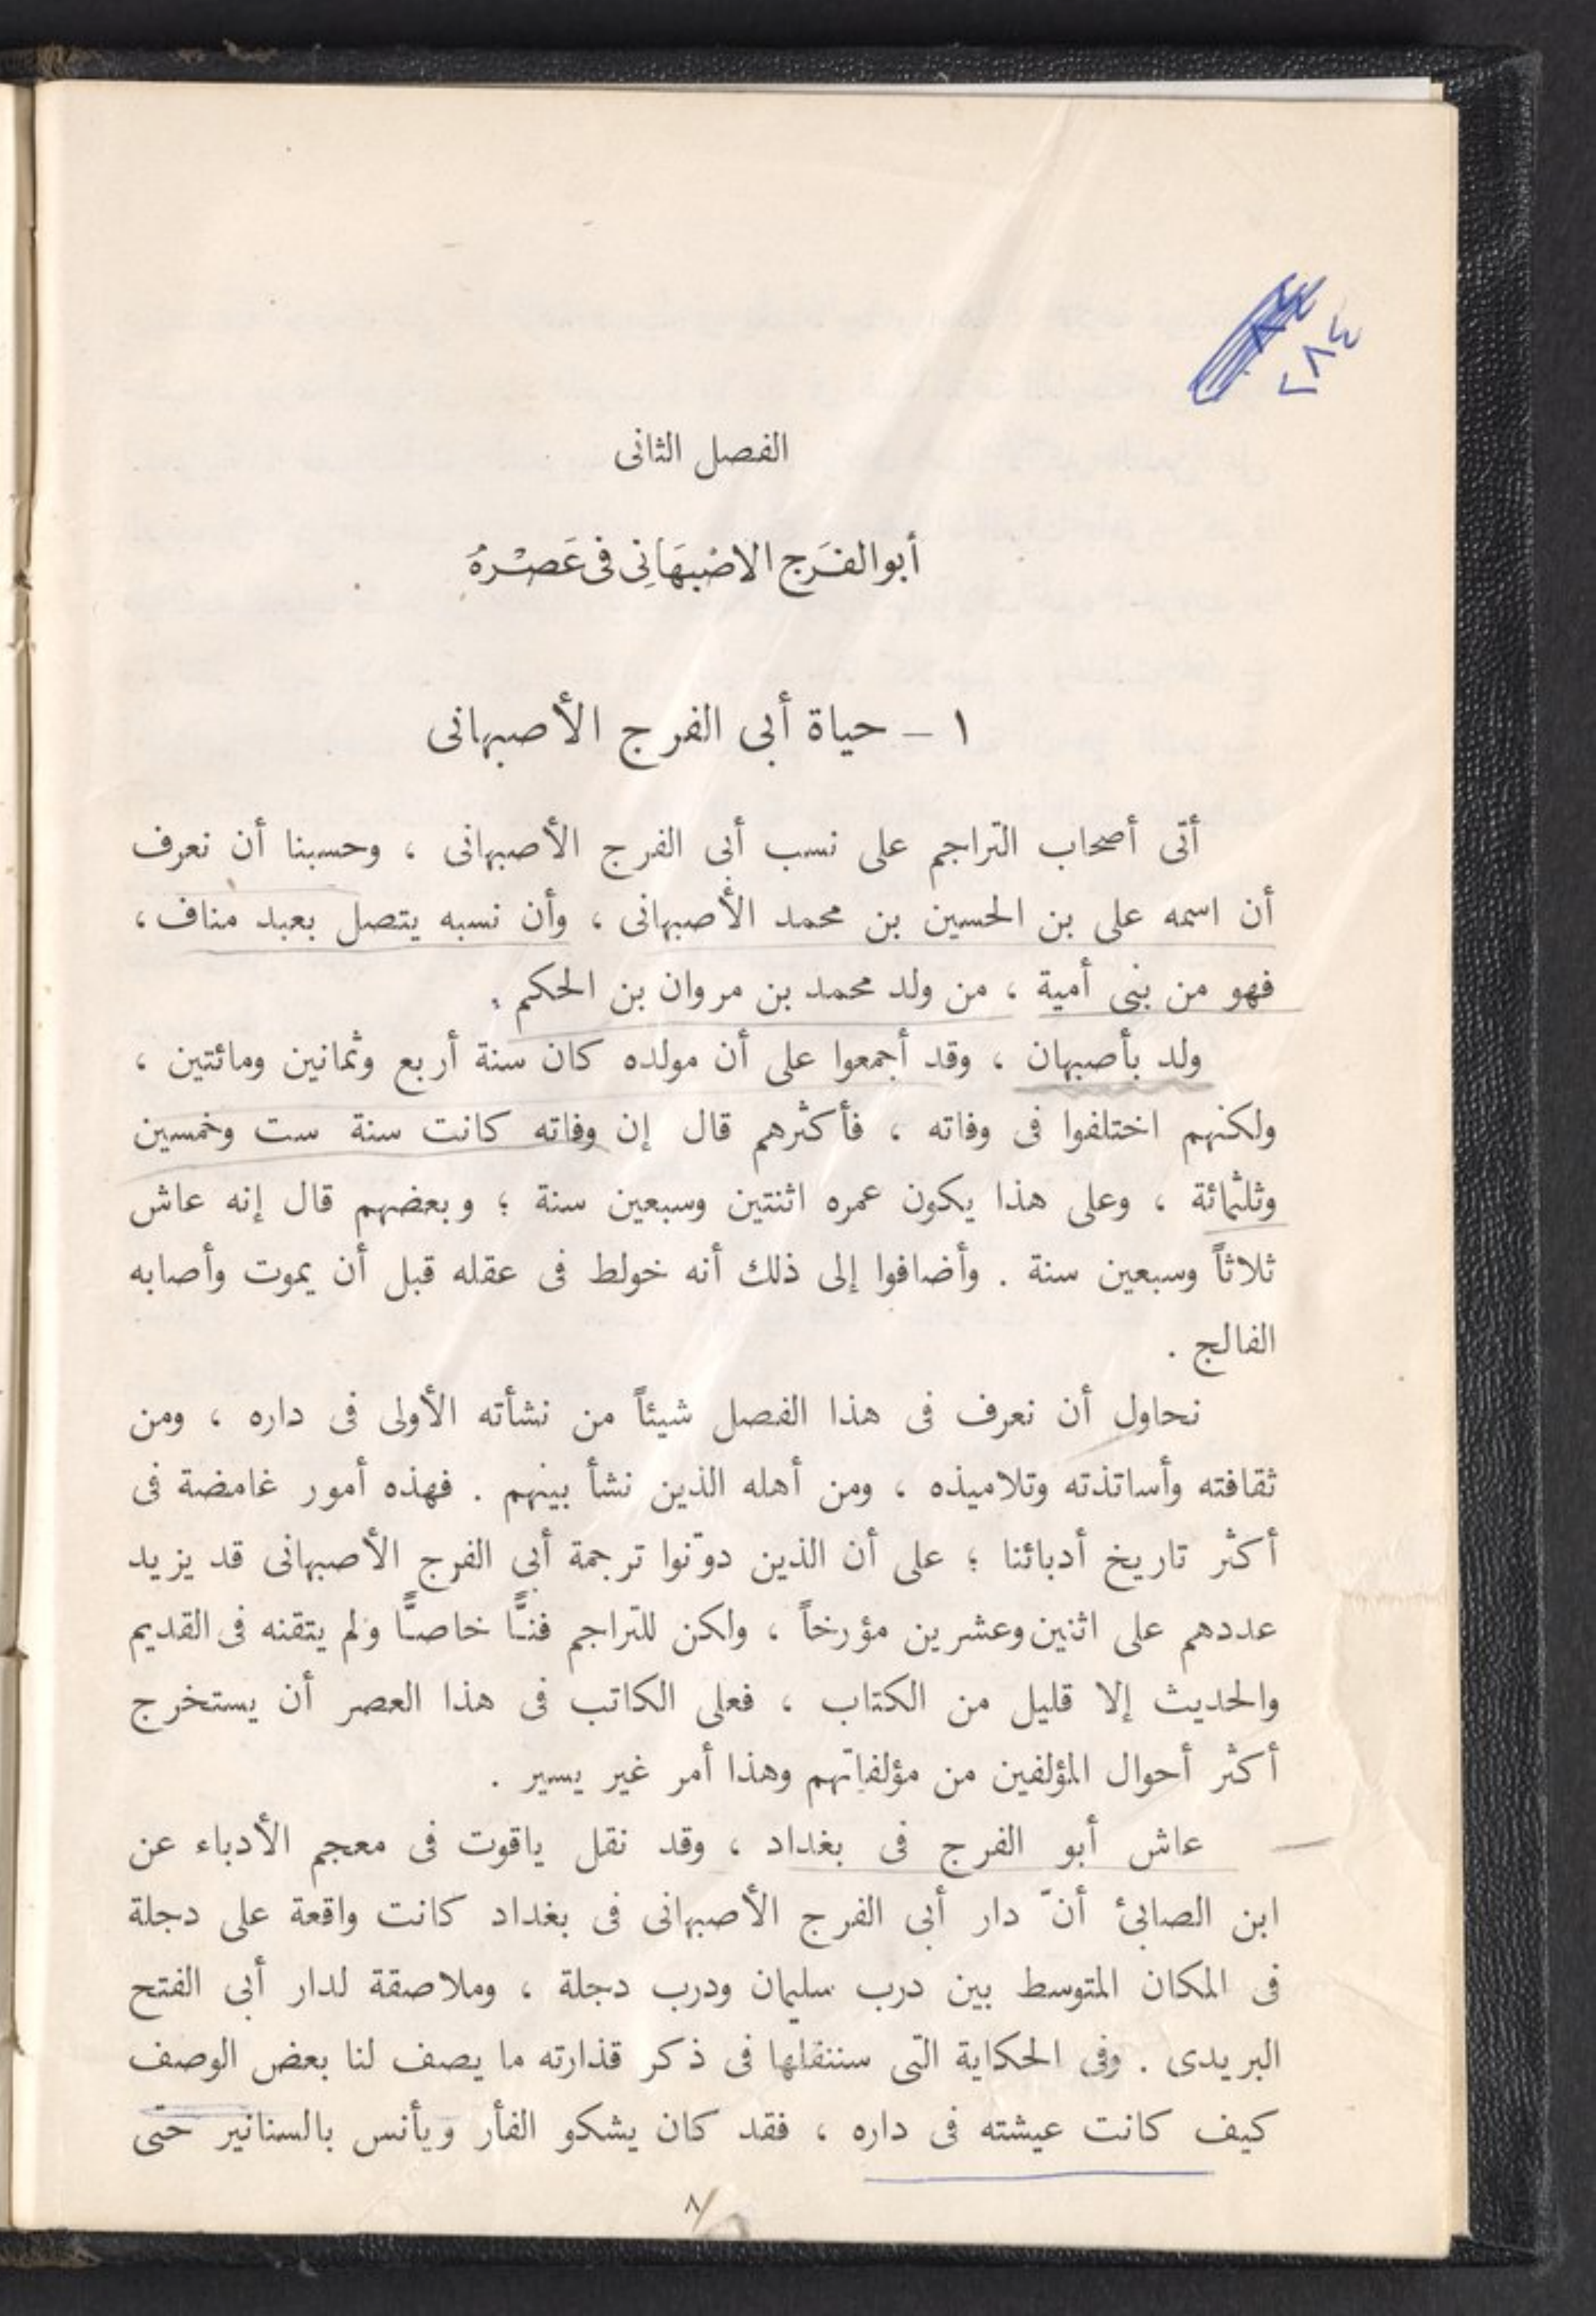 ٢٨٤
الفصل الثانى
أبو الفَرَج الاصْبهَانِى فى عَصْرهُ
١ – حياة أبى الفرج الأصبهانى
أتى أصحاب التراجم على نسب أبى الفرج الأصبهانى ، وحسبنا أن نعرف
أن اسمه على بن الحسين بن محمد الأصبهانى ، وأن نسبه يتصل بعبد مناف ،
فهو من بنى أمية ، من ولد محمد بن مروان بن الحكم .
ولد بأصبهان ، وقد أجمعوا على أن مولده كان سنة أربع وثمانين ومائتين ،
ولكنهم اختلفوا فى وفاته ، فأكثرهم قال إن وفاته كانت سنة ست وخمسين
وثلثمائة ، وعلى هذا يكون عمره اثنتين وسبعين سنة ؛ وبعضهم قال إنه عاش
ثلاثاً وسبعين سنة . وأضافوا إلى ذلك أنه خولط فى عقله قبل أن يموت وأصابه
الفالج .
نحاول أن نعرف فى هذا الفصل شيئاً من نشأته الأولى فى داره ، ومن
ثقافته وأساتذته وتلاميذه ، ومن أهله الذين نشأ بينهم . فهذه أمور غامضة فى
أكثر تاريخ أدبائنا ؛ على أن الذين دوّنوا ترجمة أبى الفرج الأصبهانى قد يزيد
عددهم على اثنين وعشرين مؤرخاً ، ولكن للتراجم فنًّا خاصًّا ولم يتقنه فى القديم
والحديث إلا قليل من الكتاب ، فعلى الكاتب فى هذا العصر أن يستخرج
أكثر أحوال المؤلفين من مؤلفاتهم وهذا أمر غير يسير .
عاش أبو الفرج فى بغداد ، وقد نقل ياقوت فى معجم الأدباء عن
ابن الصابئ أنّ دار أبى الفرج الأصبهانى فى بغداد كانت واقعة على دجلة
فى المكان المتوسط بين درب سليمان ودرب دجلة ، وملاصقة لدار أبى الفتح
البريدى . وفى الحكاية التى سننقلها فى ذكر قذارته ما يصف لنا بعض الوصف
كيف كانت عيشته فى داره ، فقد كان يشكو الفأر ويأنس بالسنانير حتى
٨